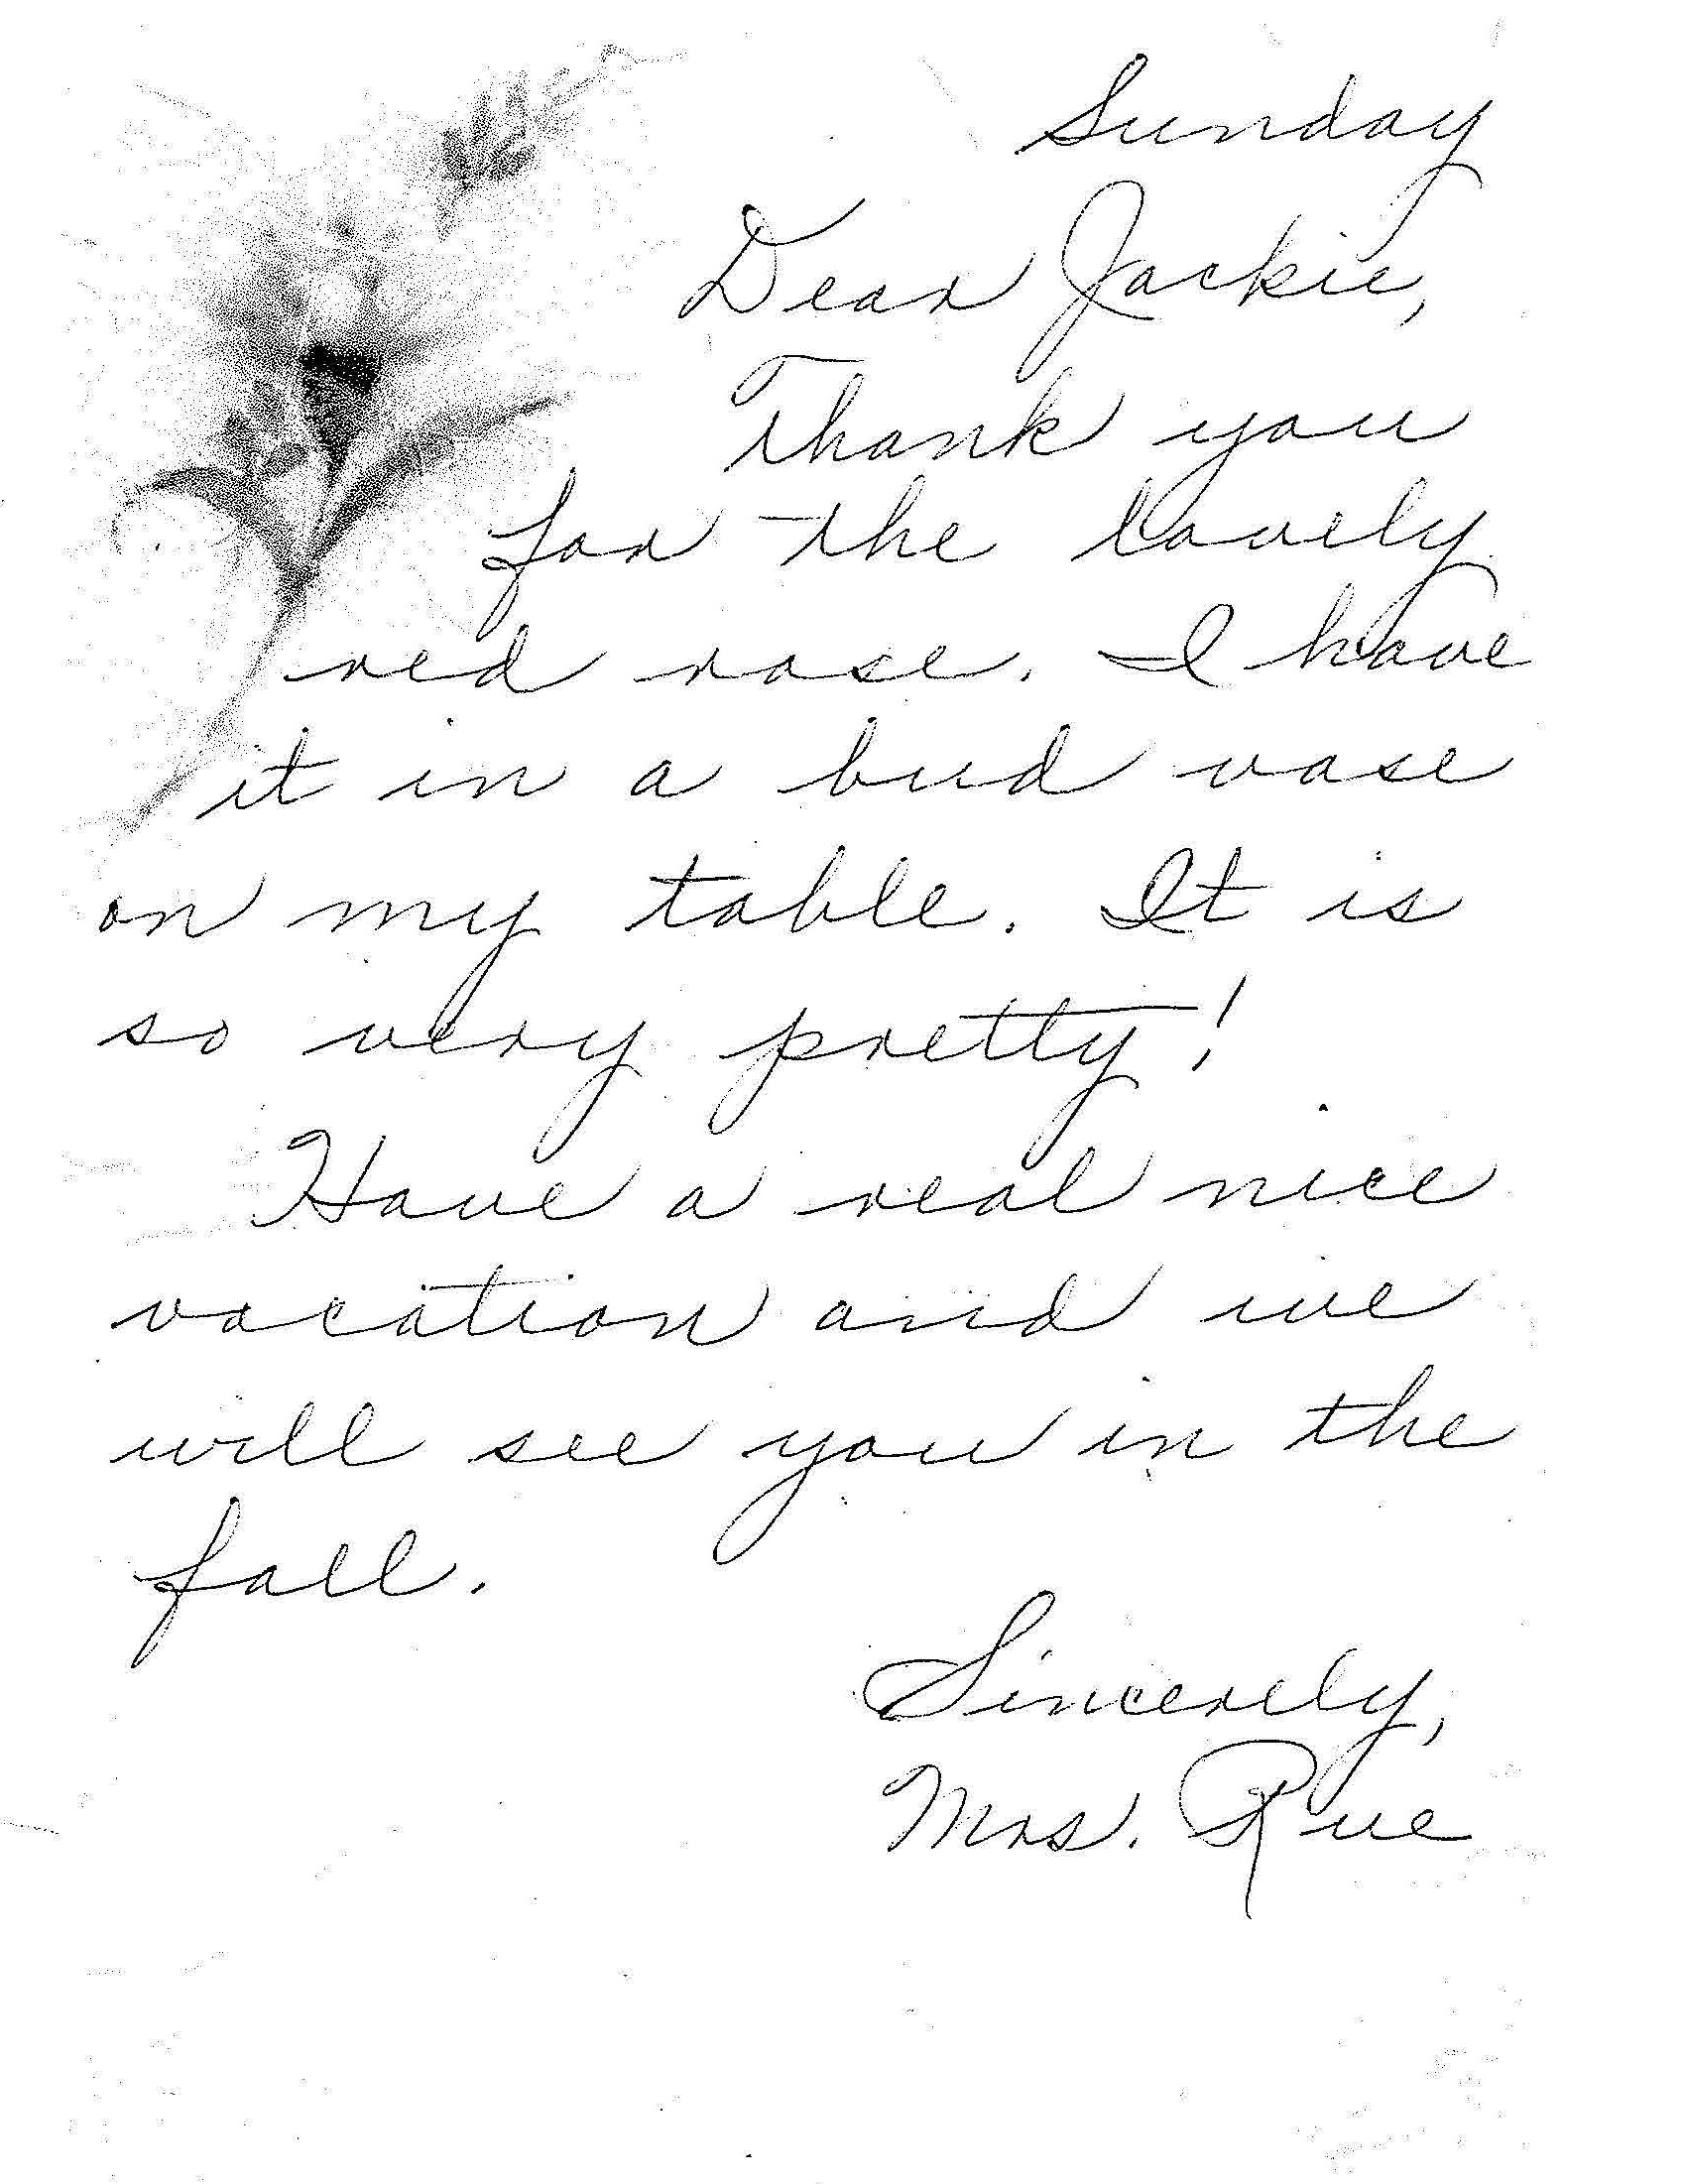 Sunday
Dear Jackie,
Thank you
for the lovely
red rose. I have
it in a bud vase
on my table. It is
so very pretty!
Have a real nice
vacation and we
will see you in the
fall.
Sincerely,
Mrs. Rue